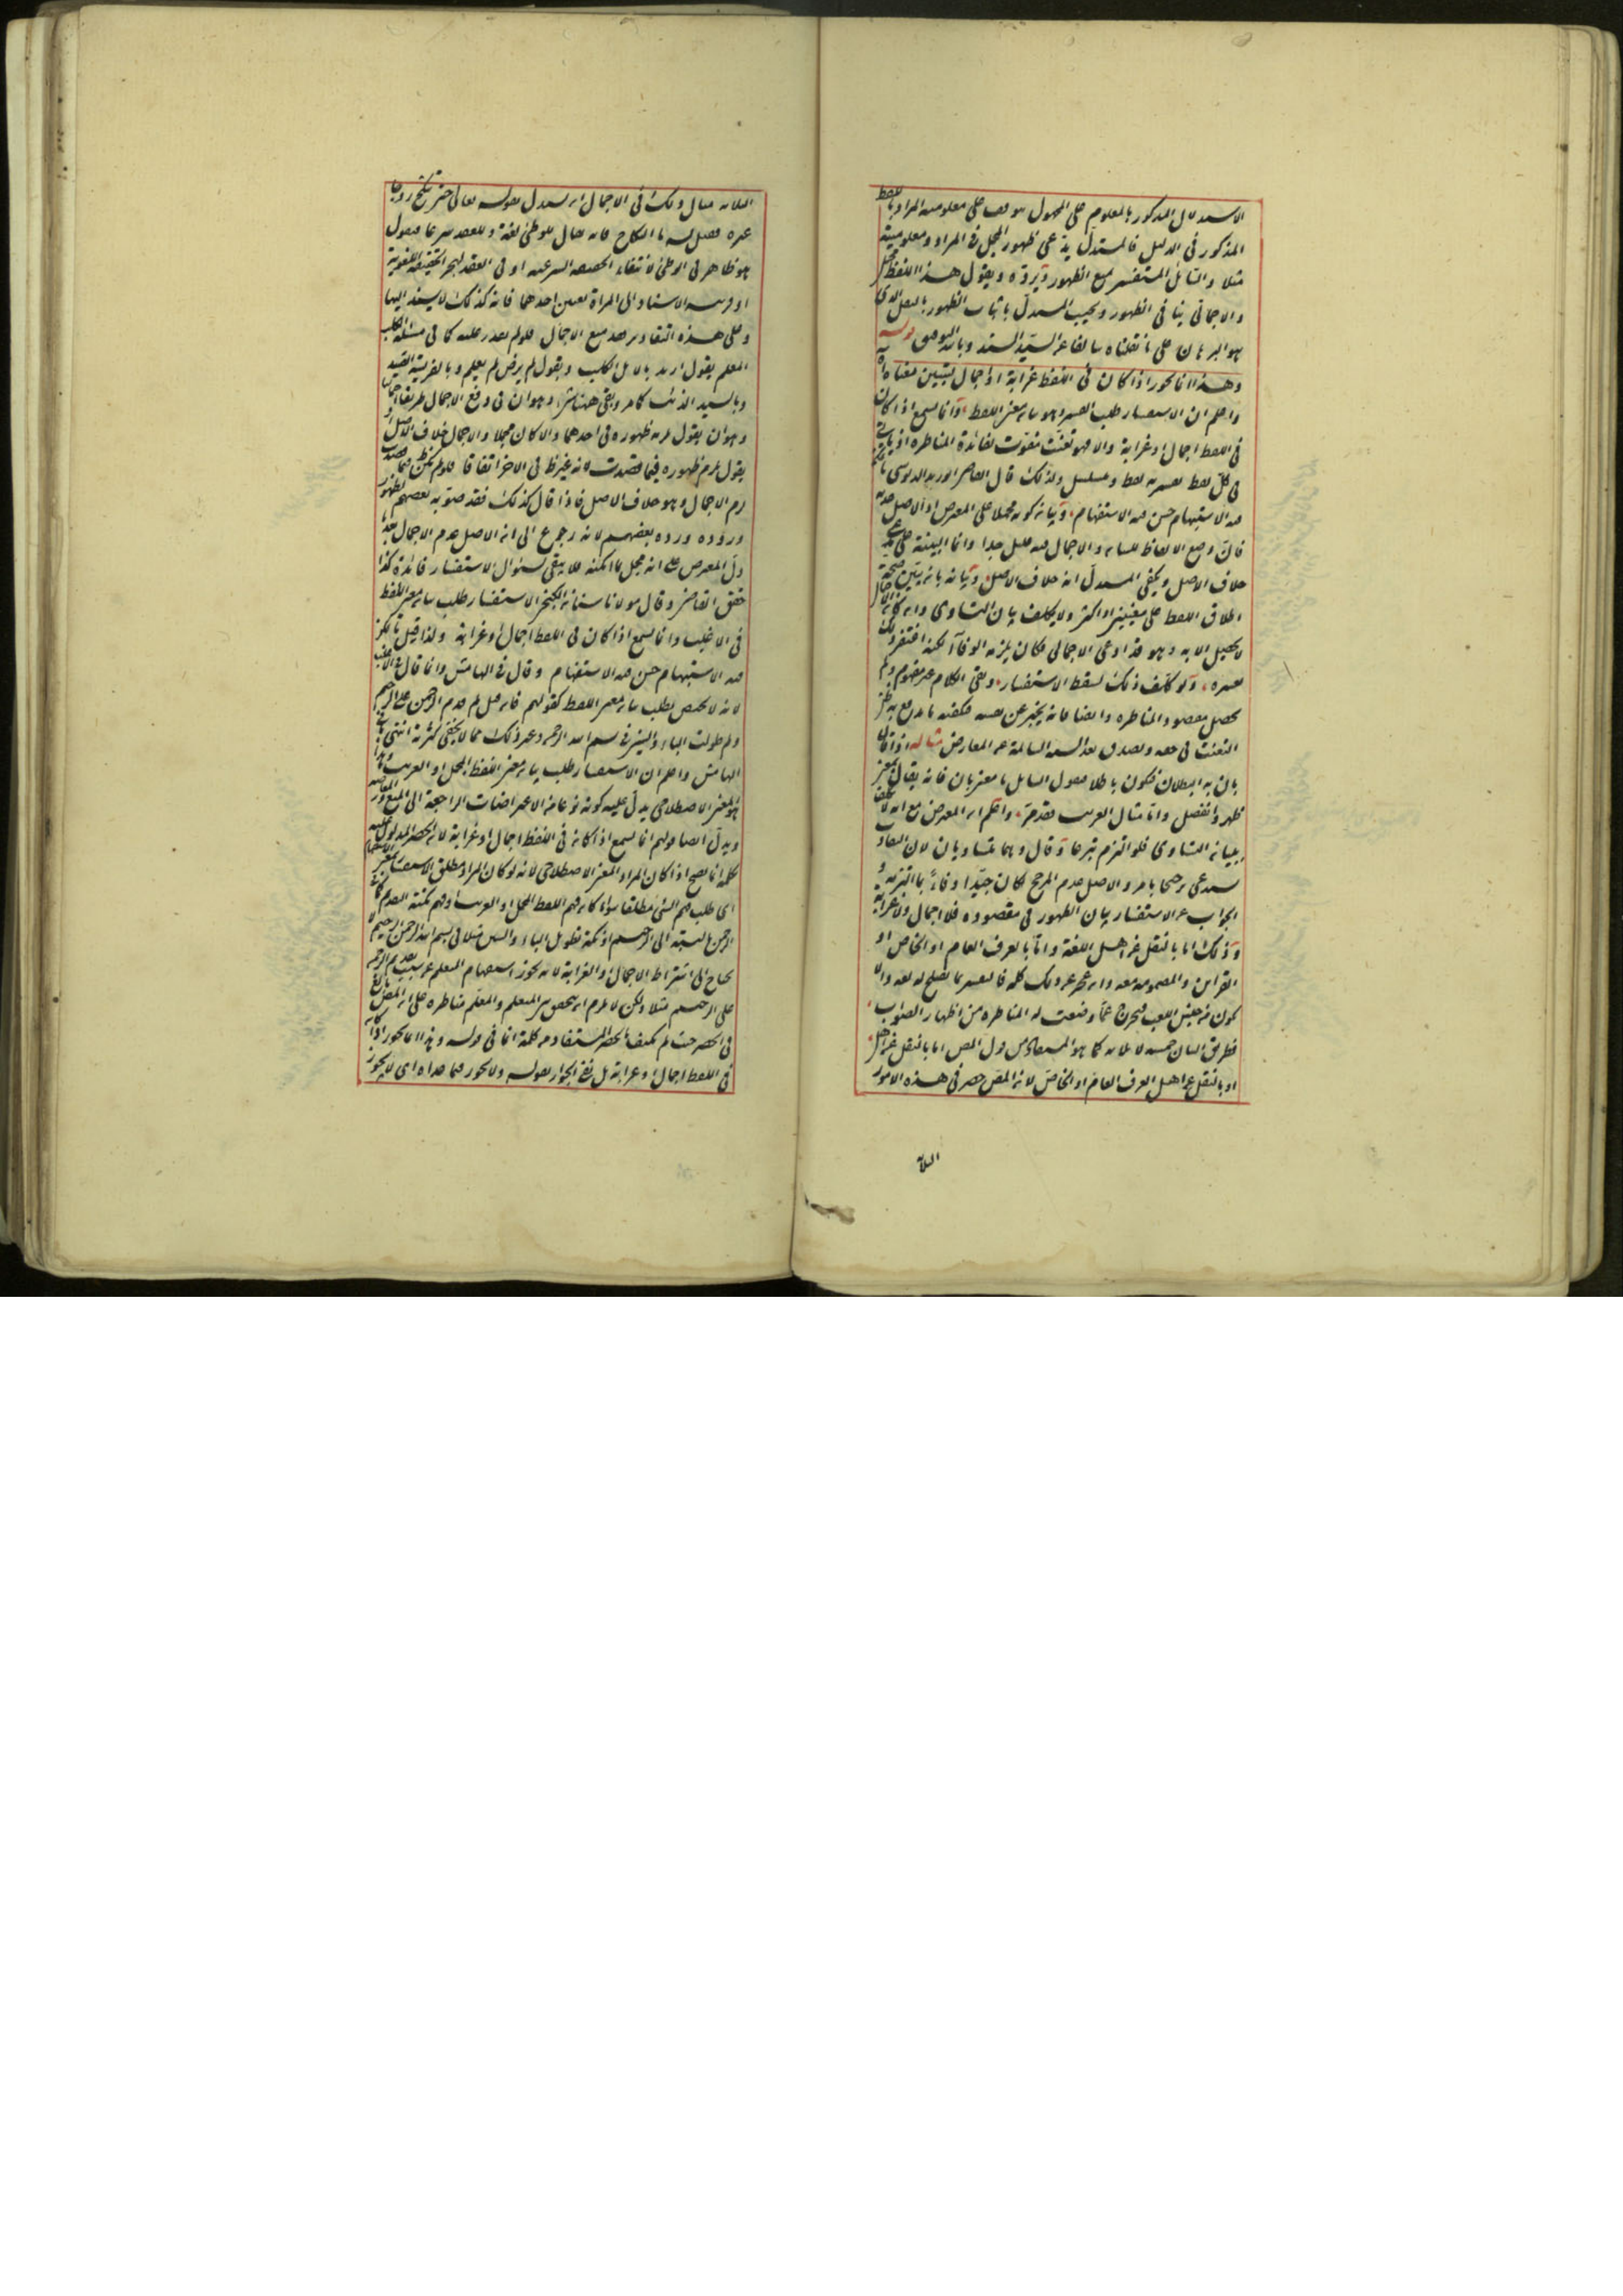 الاستدلال المذكور بالمعلوم على المجهول موقوف على معلومية المراد باللفظ
المذكور في الدليل فالمستدل يدعى ظهور المجمل في المراد ومعلوميته
مثلا والسائل المستفسر يمنع الظهور ويرده ويقول هذا اللفظ مجمل
والاجمال ينافى الظهور ويجيب المستدل باثبات الظهور بالنقل الذى
هو البرهان على ما نقلناه سالفا عن السيد السند وبالله التوفيق قوله
وهذا انما يجوز اذا كان فى اللفظ غرابة او اجمال يتبين معناه
واعلم ان الاستفسار طلب التفسير وهو بيان معنى اللفظ وانما يسمع اذا كان
فى اللفظ اجمال او غرابة والا فهو تعنت مفوت لفائدة المناظرة اذ ياتى
فى كل لفظ تفسير به لفظ ويتسلسل ولذلك قال القاضى
فيه الاستبهام حسن فيه الاستفهام وبيان كونه مجملا على المعترض اذ الاصل عدمه
فان وضع الالفاظ للبيان والاجمال فيه قليل جدا وانما البينة على مدعى
خلاف الاصل ويكفى المستدل انه خلاف الاصل وبيانه بان يبين صحة
اطلاق اللفظ على معنيين او اكثر ولا يكلف بيان التساوى وان كان الاجمال
لا يحصل الا به وهو قد ادعى الاجمال فكان يلزمه الوفاء لكنه اغتفر ذلك
لعسره ولو كلف ذلك لسقط الاستفسار وبقى الكلام غير مفهوم ولم
يحصل مقصود المناظرة وايضا فانه يخبر عن نفسه فيكفيه ما يدفع به ظن
التعنت فى حقه ويصدق بعدالته السالمة عن المعارض مثاله اذا قال
بان به البطلان فيكون باطلا فيقول السائل ما معنى بان فانه يقال بمعنى
ظهر وانفصل واما مثال الغريب فقد مر واعلم ان المعترض مع انه لا يكلف
ببيان التساوى فلو التزم تبرعا وقال وهما متساويان لان التفاوت
يستدعى ترجيحا بامر والاصل عدم المرجح لكان جيدا وفاء بما التزمه و
الجواب عن الاستفسار بيان الظهور فى مقصوده فلا اجمال ولا غرابة
وذلك اما بالنقل عن اهل اللغة واما بالعرف العام او الخاص او
القرائن المضمومة معه وان عجز عن ذلك كله فالتفسير بما يصلح له لغة والا
يكون من جنس اللعب فيخرج عما وضعت له المناظرة من اظهار الصواب
فطريق البيان خمسة لا ثلاثة كما هو المستفاد من قول المص اما بالنقل عن اهل
او بالنقل عن اهل العرف العام او الخاص لان المص حصر فى هذه الامور
الثلاثة
الثلاثة مثال ذلك فى الاجمال ان يستدل بقوله تعالى حتى تنكح زوجا
غيره فيقول له ما النكاح فانه يقال للوطئ لغة وللعقد شرعا فيقول
هو ظاهر فى الوطئ لانتفاء الحقيقة الشرعية او فى العقد لهجر الحقيقة اللغوية
او قرينة الاسناد الى المراة تعين احدهما فانه كذلك لا يسند اليها
وعلى هذه التقادير قد منع الاجمال فلو لم يقدر عليه كما فى مسئلة الكلب
المعلم يقول اريد بالايل الكلب وبقول لم يرض لم يعلم وبالفريسة الصيد
وبالسيد الذئب كما مر وبقى ههنا شئ وهو ان فى دفع الاجمال طريقا اجماليا
وهو ان يقول يلزم ظهوره فى احدهما والا كان مجملا والاجمال خلاف الاصل او
يقول يلزم ظهوره فيما قصدت لانه غير ظاهر فى الاخر اتفاقا فلو لم يكن ظاهرا فيما قصدت
لزم الاجمال وهو خلاف الاصل فاذا قال كذلك فقد صوبه بعضهم لظهور
وروده ورده بعضهم لانه رجوع الى ان الاصل عدم الاجمال بعد ما
دل المعترض على انه مجمل بما امكنه فلا يبقى لسئوال الاستفسار فائدة كذا
حقق القاضى وقال مولانا سنان الكنجى الاستفسار طلب بيان معنى اللفظ
فى الاغلب وانما يسمع اذا كان فى اللفظ اجمال او غرابة ولذا قيل ما يمكن
فيه الاستبهام حسن فيه الاستفهام وقال فى الهامش وانما قال فى الاغلب
لانه لا يختص بطلب بيان معنى اللفظ كقولهم فان قيل لم قدم الرحمن على الرحيم
ولم طولت الباء والسين فى بسم الله الرحمن وغير ذلك مما لا يخفى كثرته انتهى ما فى
الهامش واعلم ان الاستفسار طلب بيان معنى اللفظ المجمل او الغريب وهذا
هو المعنى الاصطلاحى يدل عليه كونه نوعا من الاعتراضات الراجعة الى المنع
ويدل ايضا قولهم انما يسمع اذا كان فى اللفظ اجمال او غرابة لان الحصر المدلول عليه
بكلمة انما يصح اذا كان المراد المعنى الاصطلاحى لانه لو كان المراد مطلق الاستفسار بمعنى الاستفهام
اى طلب فهم الشئ مطلقا سواء كان فهم اللفظ المجمل او الغريب او فهم نكتة التقديم كما فى
الرحمن بالنسبة الى الرحيم او نكتة تطويل الباء والسين مثلا فى بسم الله الرحمن الرحيم لا
يحتاج الى اشتراط الاجمال او الغرابة لانه يجوز استفهام المتعلم عن سبب تقديم الرحمن
على الرحيم مثلا ولكن لا يلزم ان يتحقق بين المتعلم والمعلم مناظرة على ان المص بالغ
فى الحصر حيث لم يكتف بالحصر المستفاد من كلمة انما فى قوله وهذا انما يجوز اذا كان
فى اللفظ اجمال او غرابة بل نفى الجواز بقوله ولا يجوز فيما عداه اى لا يجوز